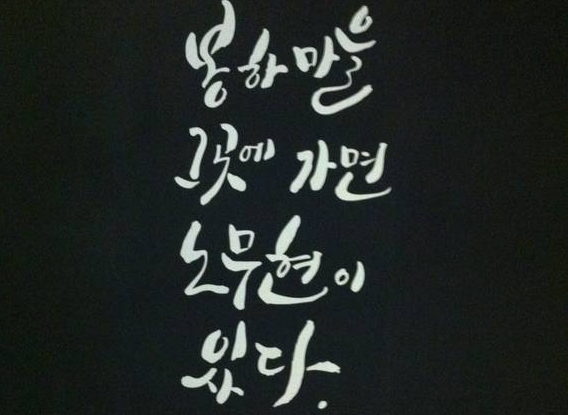 봉하마을
그곳에 가면
노무현이
있다.